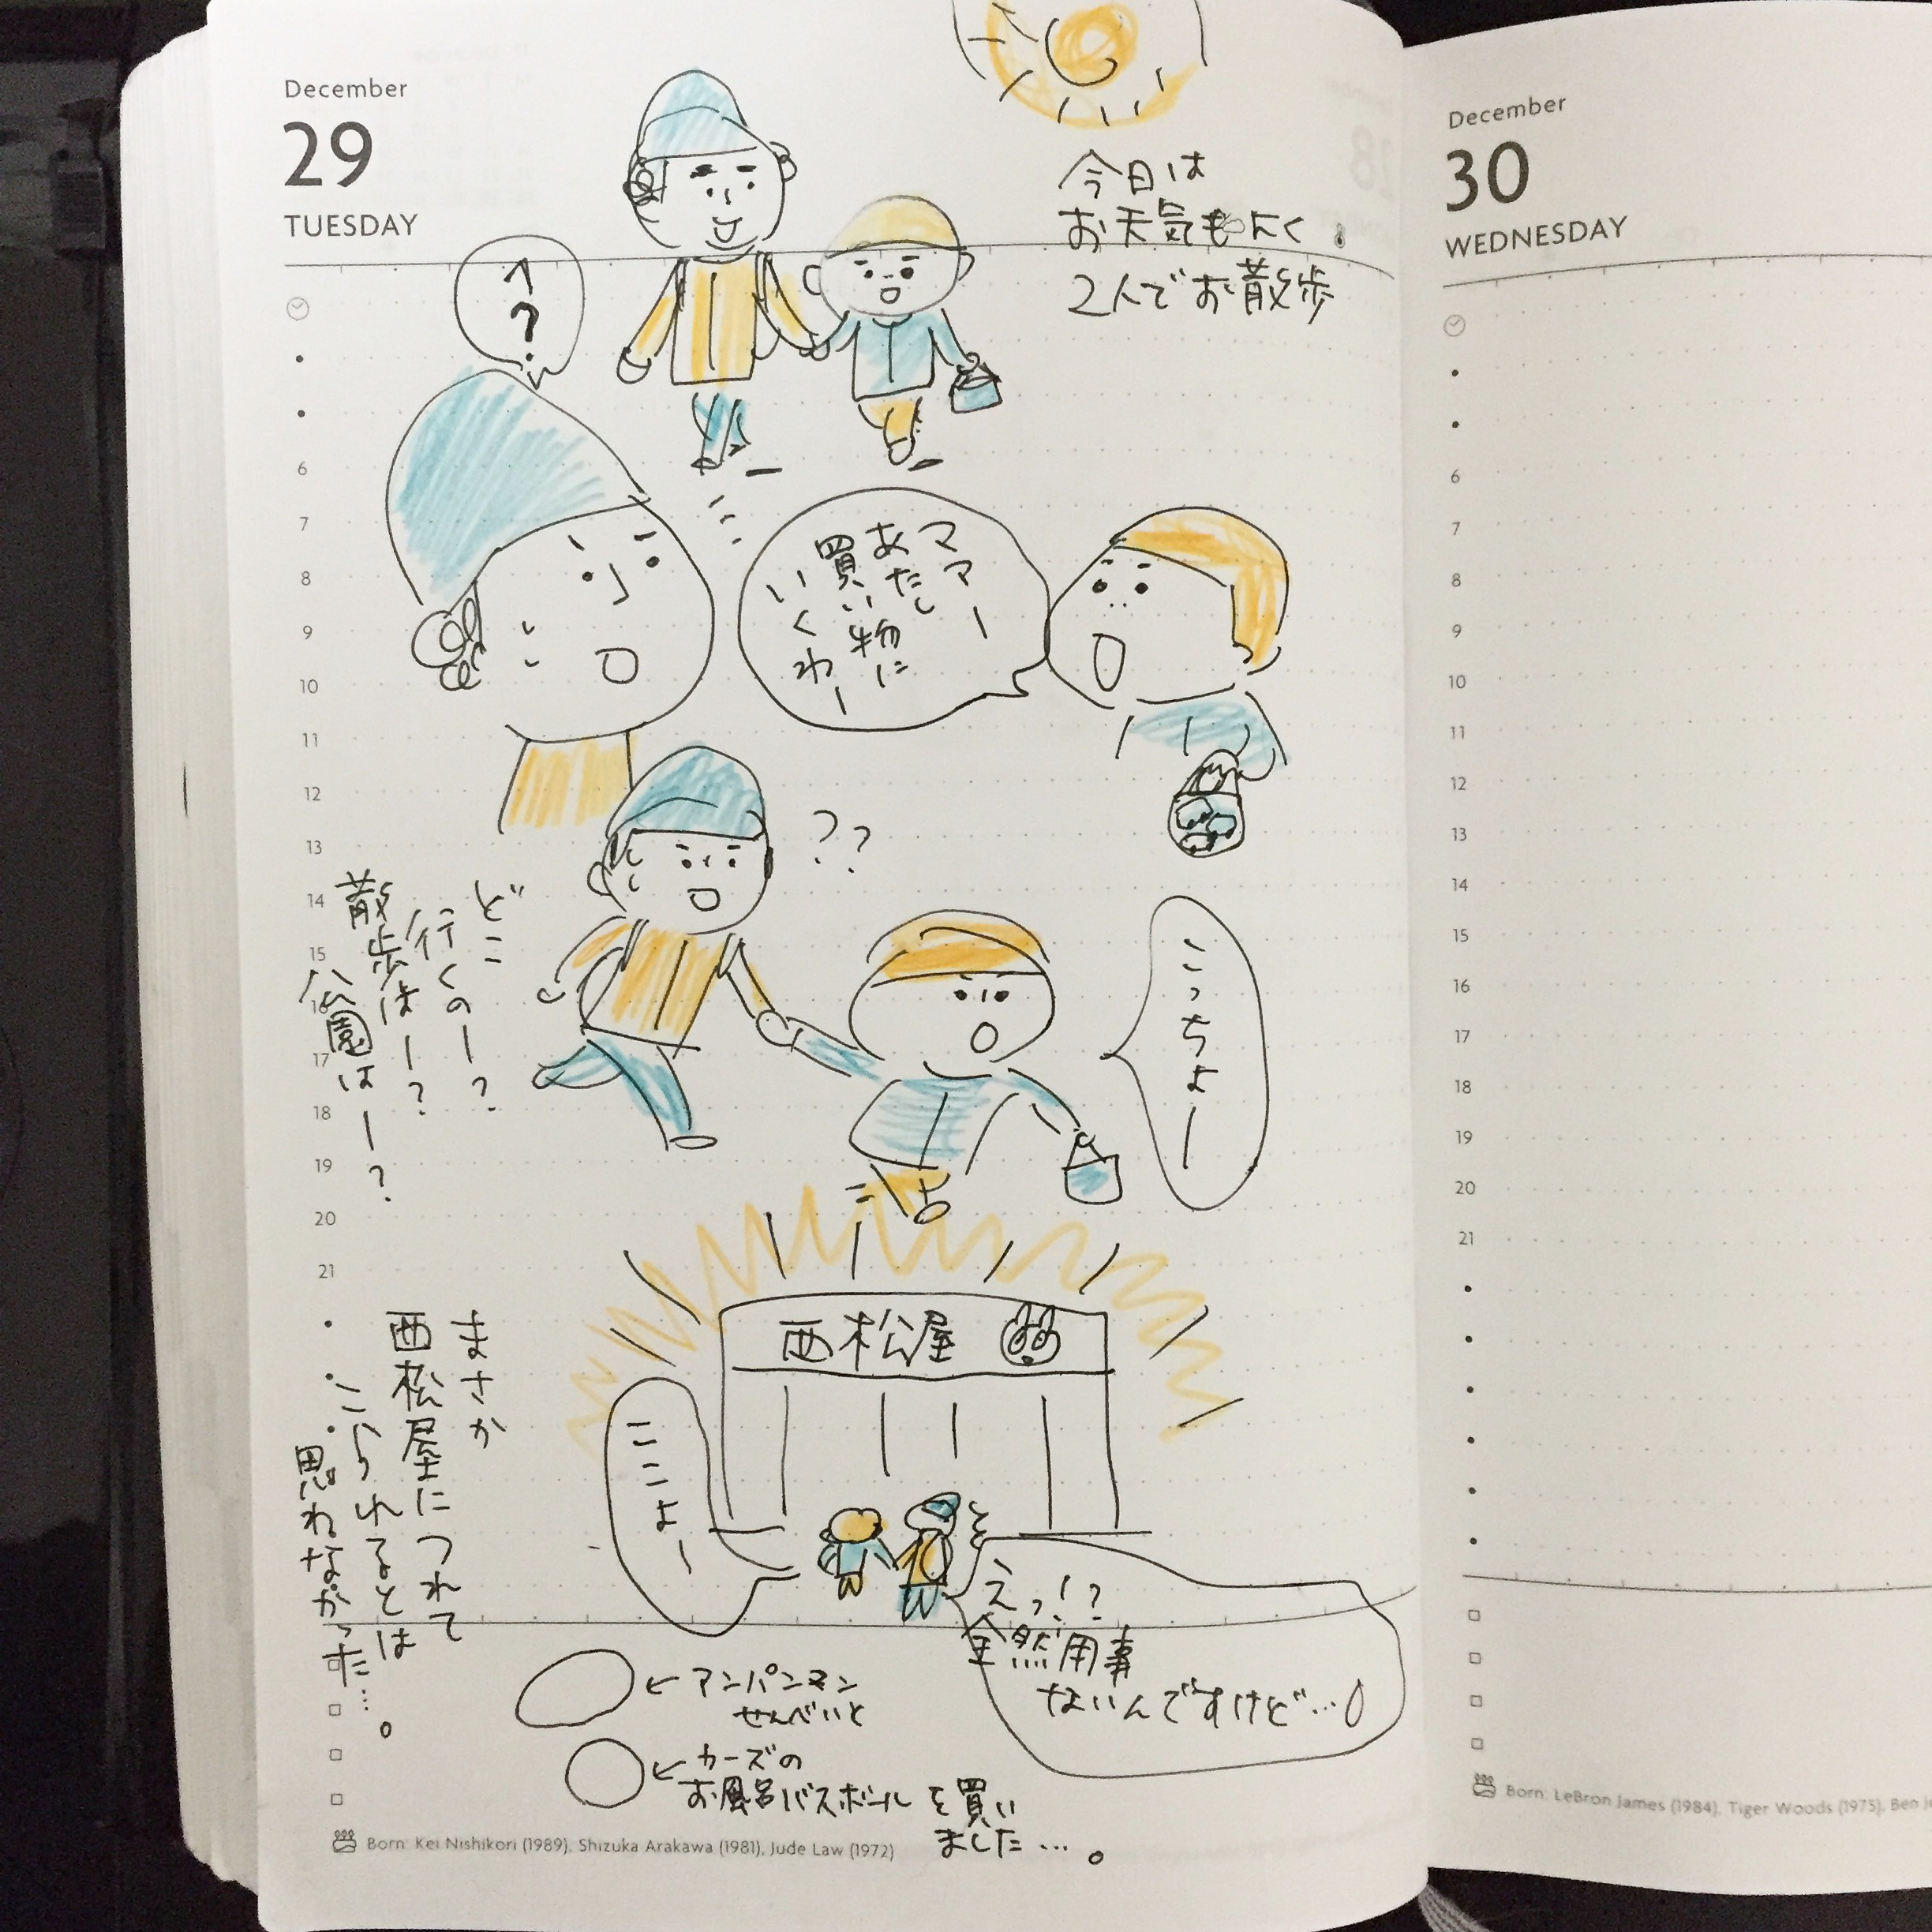 December
29
TUESDAY
今日は
お天気もよく
2人でお散歩
へ?
ママー
あたし
買い物に
いくわー
??
どこ
行くのー?
散歩はー?
公園はー?
こっちよー
西松屋
まさか
西松屋につれて
こられるとは
思わなかった…。
ここよー
えっ!?
全然用事
ないんですけど…
←アンパンマン
せんべいと
←カーズの
お風呂バスボールを買い
ました…。
6
7
8
9
10
11
12
13
14
15
16
17
18
19
20
21
Born: Kei Nishikori (1989), Shizuka Arakawa (1981), Jude Law (1972)
December
30
WEDNESDAY
6
7
8
9
10
11
12
13
14
15
16
17
18
19
20
21
Born: LeBron James (1984), Tiger Woods (1975), Ben